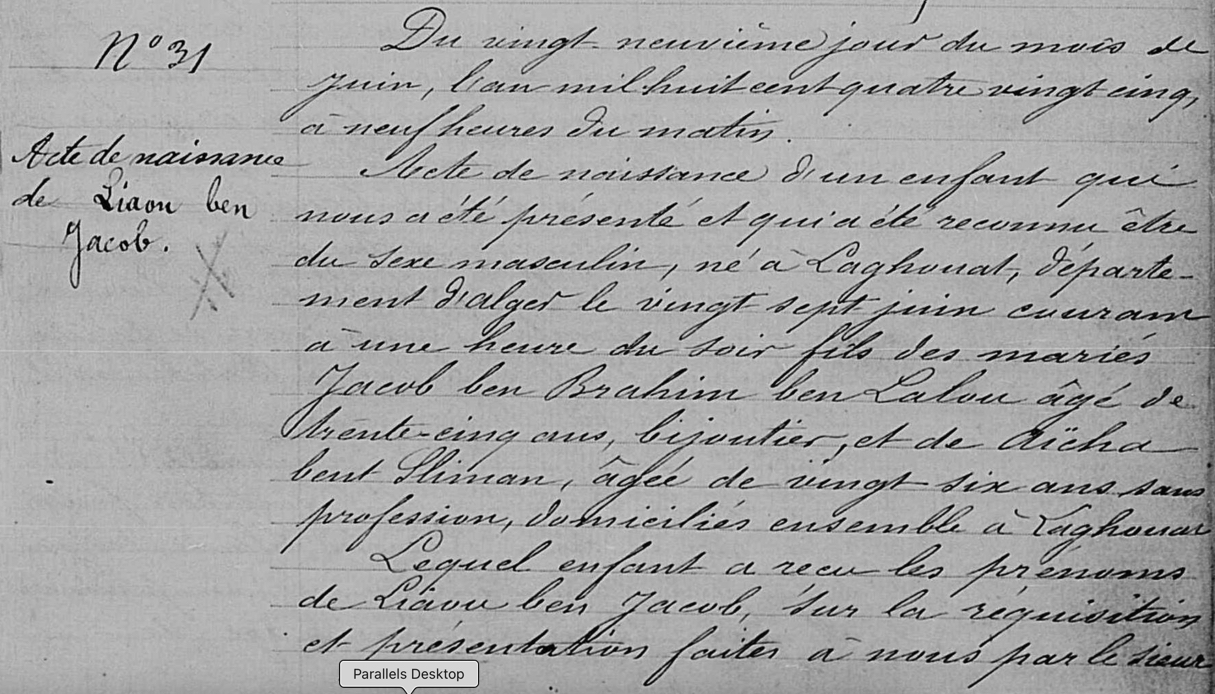 N° 31
Acte de naissance
de Liaou ben
Jacob.
Du vingt-neuvième jour du mois de
Juin, l'an mil huit cent quatre vingt cinq,
à neuf heures du matin.
Acte de naissance d'un enfant qui
nous a été présenté et qui a été reconnu être
du sexe masculin, né à Laghouat, départe-
ment d'alger le vingt sept juin courant
à une heure du soir fils des mariés
Jacob ben Brahim ben Lalou âgé de
trente-cinq ans, bijoutier, et de Aïcha
bent Sliman, âgée de vingt six ans sans
profession, domiciliés ensemble à Laghouat
Lequel enfant a reçu les prénoms
de Liaou ben Jacob, sur la réquisition
et présentation faites à nous par le sieur
Parallels Desktop